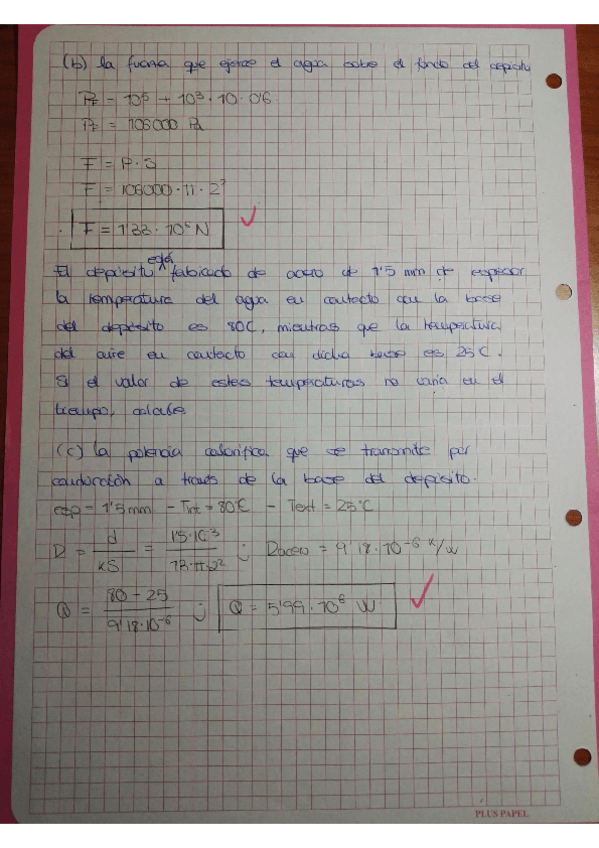 (b) la fuerza que ejerce el agua sobre el fondo del depósito
PT = 10⁵ + 10³ · 10 · 0'6
PT = 106000 Pa
F = P · S
F = 106000 · π · 2²
F = 1'33 · 10⁶ N
El depósito está fabricado de acero de 1'5 mm de espesor
la temperatura del agua en contacto con la base
del depósito es 80C, mientras que la temperatura
del aire en contacto con dicha base es 25C.
Si el valor de estas temperaturas no varia en el
tiempo, calcule
(c) la potencia calorifica que se transmite por
conducción a través de la base del depósito.
esp - 1'5 mm - Tint = 80°C - Text = 25°C
R = d / kS = 1'5 · 10⁻³ / 13 · π · 2² ; Racero = 9'18 · 10⁻⁶ K/W
Q = 80 - 25 / 9'18 · 10⁻⁶ ; Q = 5'99 · 10⁶ W
PLUS PAPEL